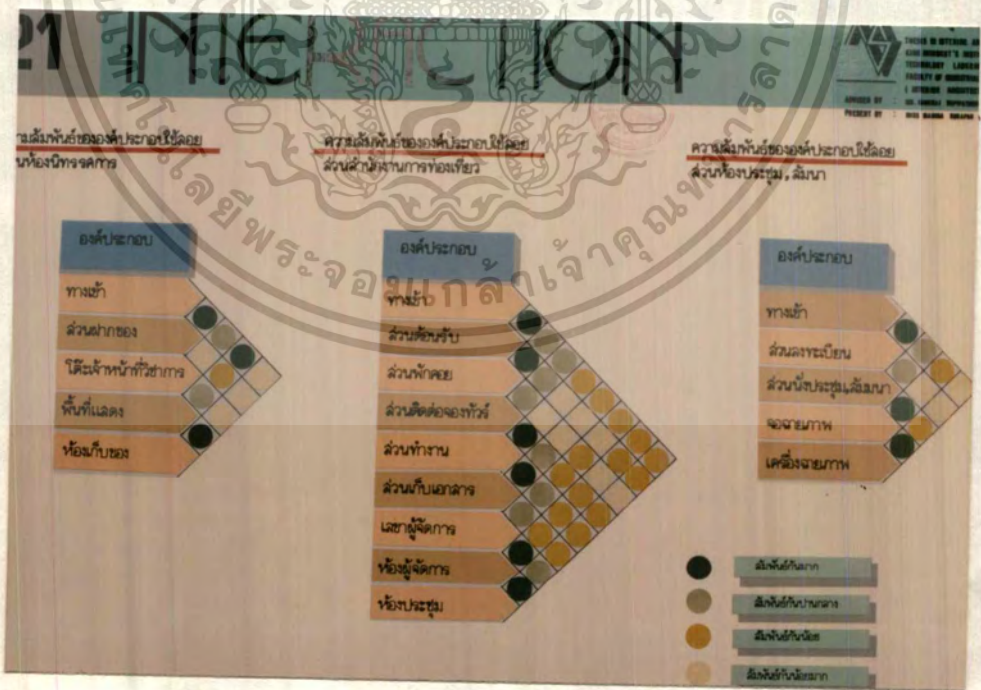 21 INTERACTION
THESIS IN INTERIOR
TECHNOLOGY
FACULTY OF
ADVISER BY :
PRESENT BY : MISS
วามสัมพันธ์ขององค์ประกอบใช้ลอย
นห้องนิทรรศการ
องค์ประกอบ
ทางเข้า
ส่วนฝากของ
โต๊ะเจ้าหน้าที่วิชาการ
พื้นที่แสดง
ห้องเก็บของ
ความสัมพันธ์ขององค์ประกอบใช้ลอย
ส่วนสำนักงานการท่องเที่ยว
องค์ประกอบ
ทางเข้า
ส่วนต้อนรับ
ส่วนพักคอย
ส่วนติดต่อจองทัวร์
ส่วนทำงาน
ส่วนเก็บเอกสาร
เลขาผู้จัดการ
ห้องผู้จัดการ
ห้องประชุม
ความสัมพันธ์ขององค์ประกอบใช้ลอย
ส่วนห้องประชุม, สัมนา
องค์ประกอบ
ทางเข้า
ส่วนลงทะเบียน
ส่วนนั่งประชุม,สัมมนา
จอฉายภาพ
เครื่องฉายภาพ
สัมพันธ์กันมาก
สัมพันธ์กันปานกลาง
สัมพันธ์กันน้อย
สัมพันธ์กันน้อยมาก
โลยีพระจอมเกล้าเจ้าคุณทหารลาด